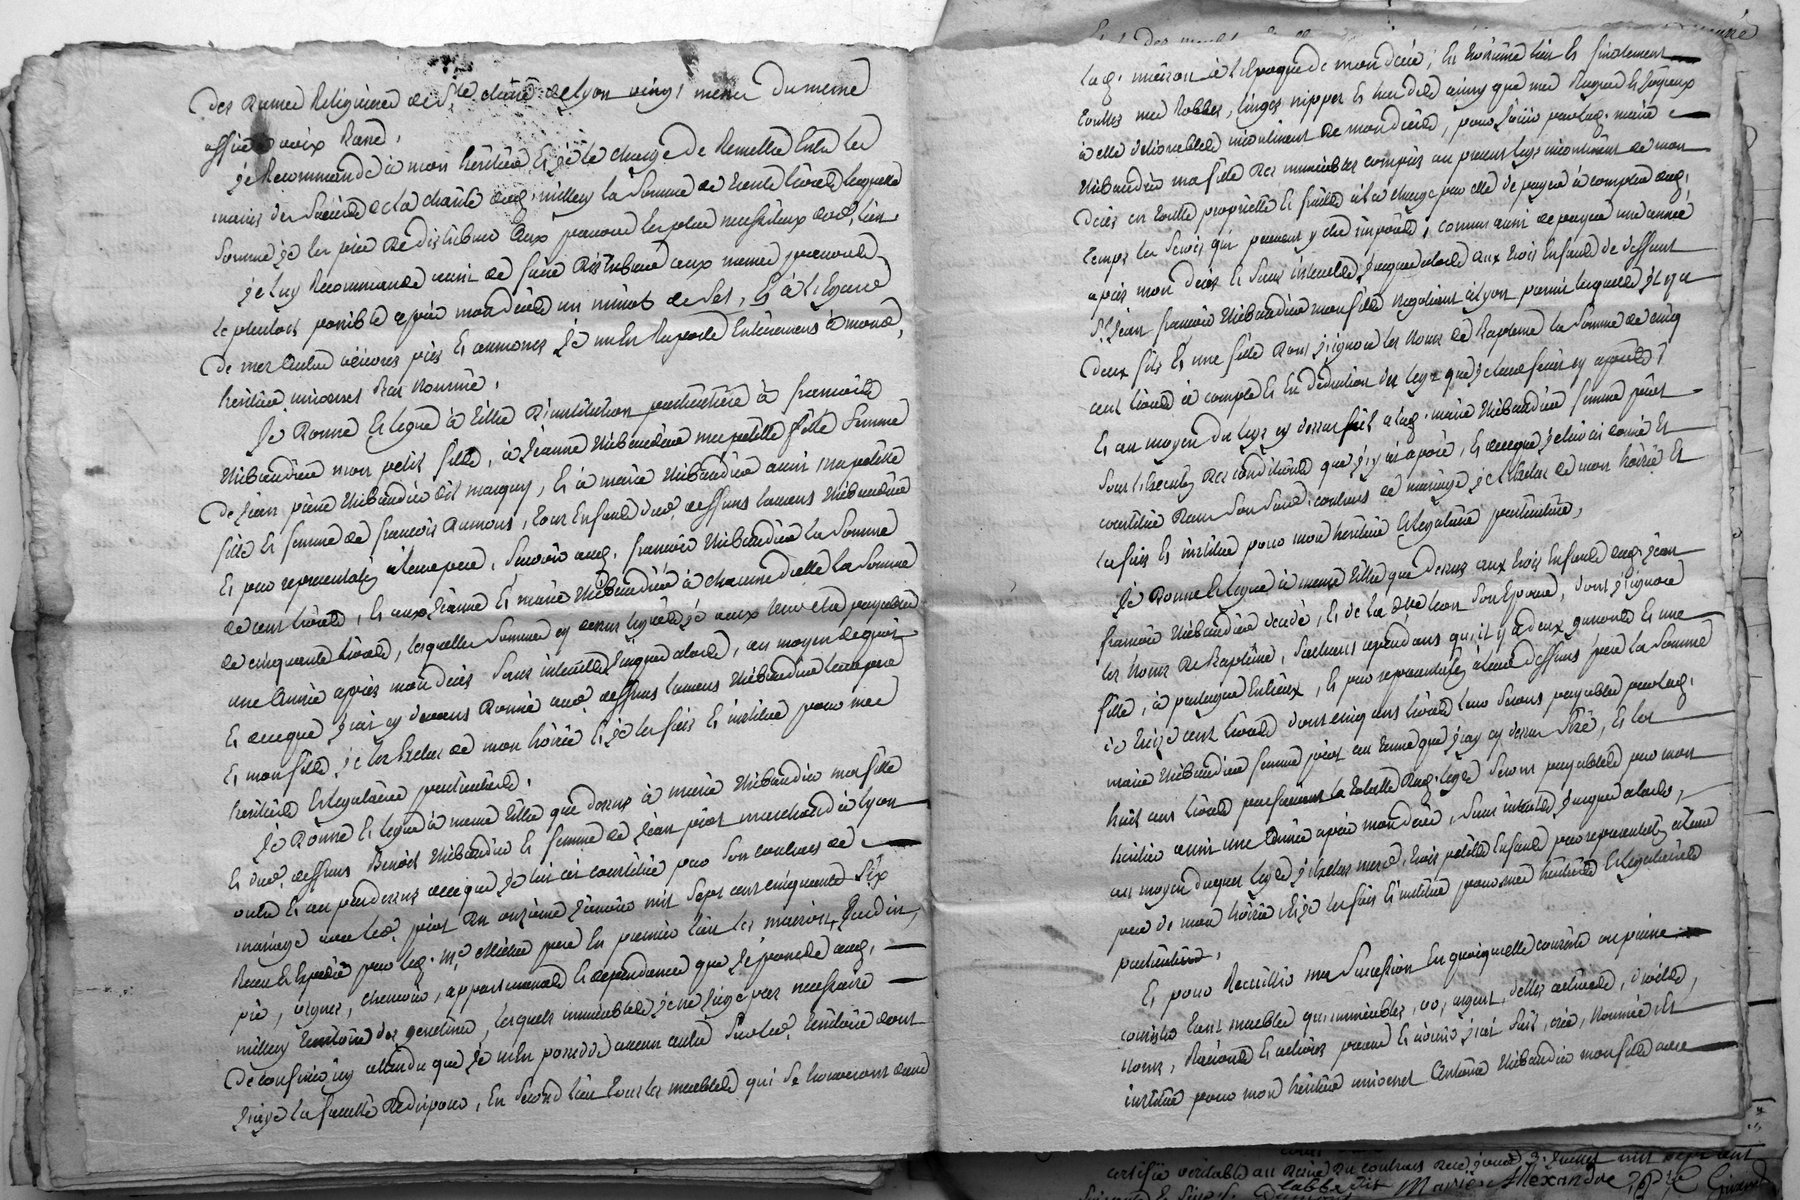 Des Dames Religieuses de Ste claire de Lyon vingt messes du meme
office à voix basse,
je Recommande à mon héritier et je le charge de Remettre entre les
mains des Sœurs de la charité dud. millery la Somme de trente livres laquelle
Somme je les prie de distribuer aux pauvres les plus necessiteux dud. lieu
je luy Recommande aussi de faire distribuer aux memes pauvres
le plutost possible après mon decès un minot de Sel, et à l'egard
de mes autres œuvres pies et aumones je m'en rapporte entierement à mond.
héritier universel bas nommé,
Je Donne et legue à titre d'institution particulière à françois
thibaudier mon petit fils, à Jeanne thibaudier ma petite fille femme
de jean pierre thibaudier dit marquis, et à marie thibaudier aussi ma petite
fille et femme de françois dumont, tous enfants dud. deffunt laurens thibaudier
et pour representation de leur pere, Savoir aud. françois thibaudier la Somme
de cent livres, et aux. Jeanne et marie thibaudier à chacune d'elle la Somme
de cinquante livres, lesquelles Sommes cy dessus leguées je veux leur etre payables
une année après mon decès Sans interests jusques alors, au moyen de quoi
et de ceque j'ai cy devant donné aud. deffunt laurens thibaudier leur pere
et mon fils, je les Exclus de mon hoirie et je les fais et institue pour mes
héritiers et legataires particuliers.
Je Donne et legue à meme titre que dessus à marie thibaudier ma fille
et dud. deffunt Benoit thibaudier et femme de jean piot marchand à Lyon
outre et au pardessus de ceque je lui ai constitué pour son contract de
mariage avec led. piot du onzieme janvier mil sept cent cinquante Six
Recu et Expedié par led. Me pere en premier lieu les maison, Jardin,
pré, vignes, chenevier, appartenances et dependances que je possede aud.
millery territoire des , lesquels immeubles je ne juge pas necessaire
de confiner icy attendu que je n'en possede aucun autre Sur led. territoire dont
j'aye la faculté de disposer, En Second lieu tous les meubles qui se trouveront dans
lad. maison à l'epoque de mon decès, Et troisième lieu et finalement
toutes mes Robbes, linges, nippes et hardes ainsy que mes Bagues et joyaux
à elle delivrables incontinent de mon decès, pour jouir par lad. marie
thibaudier ma fille des immeubles compris au present legs incontinent de mon
decès en toutte propriété et à la charge par elle de payer à compter dud.
temps les servis qui peuvent y etre imposés, comme aussi de payer une année
après mon decès et Sans interests jusques alors aux trois Enfants de deffunt
Sr Jean françois thibaudier mon fils negotiant à Lyon parmi lesquels il y a
deux fils et une fille dont j'ignore les Noms de Bapteme la Somme de cinq
cent livres à compte et en déduction du legs que je leur ferai cy après,
et au moyen du legs cy dessus fait à lad. marie thibaudier femme piot
Sous l'execution des conditions que j'y ai apposé, et de ceque je lui ai donné et
constitué dans Son Susd. contract de mariage je l'Exclus de mon hoirie et
la fais et institue pour mon héritière et legataire particulière,
Je Donne et legue à meme titre que dessus aux trois Enfants dud. jean
françois thibaudier décédé, et de la dlle leon son Epouse, dont j'ignore
les Noms de Bapteme, Sachant cependant qu'il y a deux garçons et une
fille, à partager entr'eux, et pour representation de leur deffunt pere la Somme
de treize cent livres dont cinq cens livres leur seront payables par lad.
marie thibaudier femme piot au terme que j'ay cy dessus fixé, et les
huit cens livres parfaisant la totalité dud. legs seront payables par mon
héritier aussi une année après mon decès, Sans interests jusques alors,
au moyen duquel legs j'Exclus mesd. trois petits Enfants pour representation de leur
pere de mon hoirie et je les fais et institue pour mes héritiers et legataires
particuliers.
Et pour Recueillir ma Succession En quoiqu'elle consiste ou puisse
consister tant meubles qu'immeubles, or, argent, dettes actives, droits,
Noms, Raisons et actions presens et à venir j'ai fait, créé, Nommé et
institué pour mon héritier universel Antoine thibaudier mon fils avec
certifié veritable au desir du contract recu
l'abbé Marie Alexandre